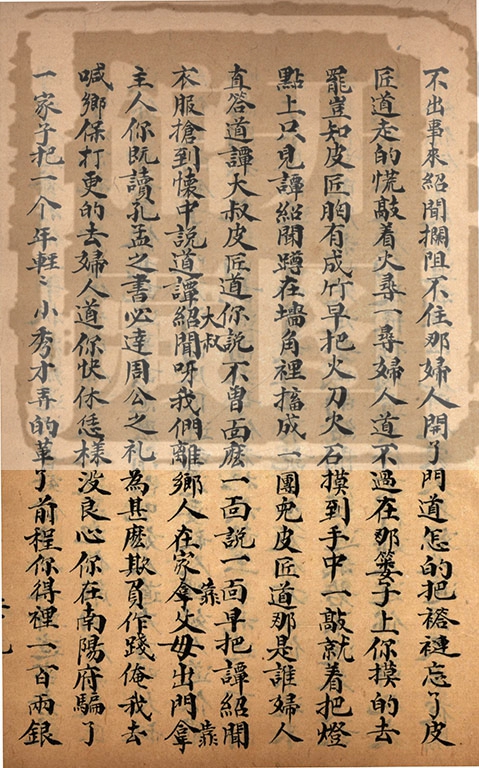 不出事來紹聞攔阻不住那婦人開了門道怎的把褡褳忘了皮
匠道走的慌敲着火尋一尋婦人道不過在那簍子上你摸的去
罷豈知皮匠胸有成竹早把火刀火石摸到手中一敲就着把燈
點上只見譚紹聞蹲在墻角裡搐成一團兒皮匠道那是誰婦人
直答道譚大叔皮匠道你說不曽面麽一面說一面早把譚紹聞
大叔 靠 靠
衣服搶到懷中說道譚紹聞呀我們離鄉人在家拿父母出門拿
主人你既讀孔孟之書必達周公之礼為甚麽欺負作踐俺我去
喊鄉保打更的去婦人道你快休恁樣没良心你在南陽府騙了
一家子把一个年輕〻小秀才弄的革了前程你得裡一百两銀